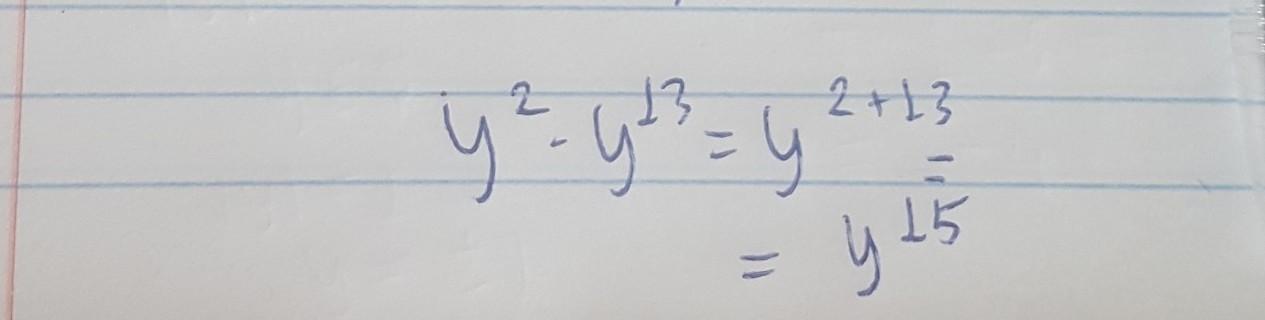 y² · y¹³ = y²⁺¹³
=
= y¹⁵